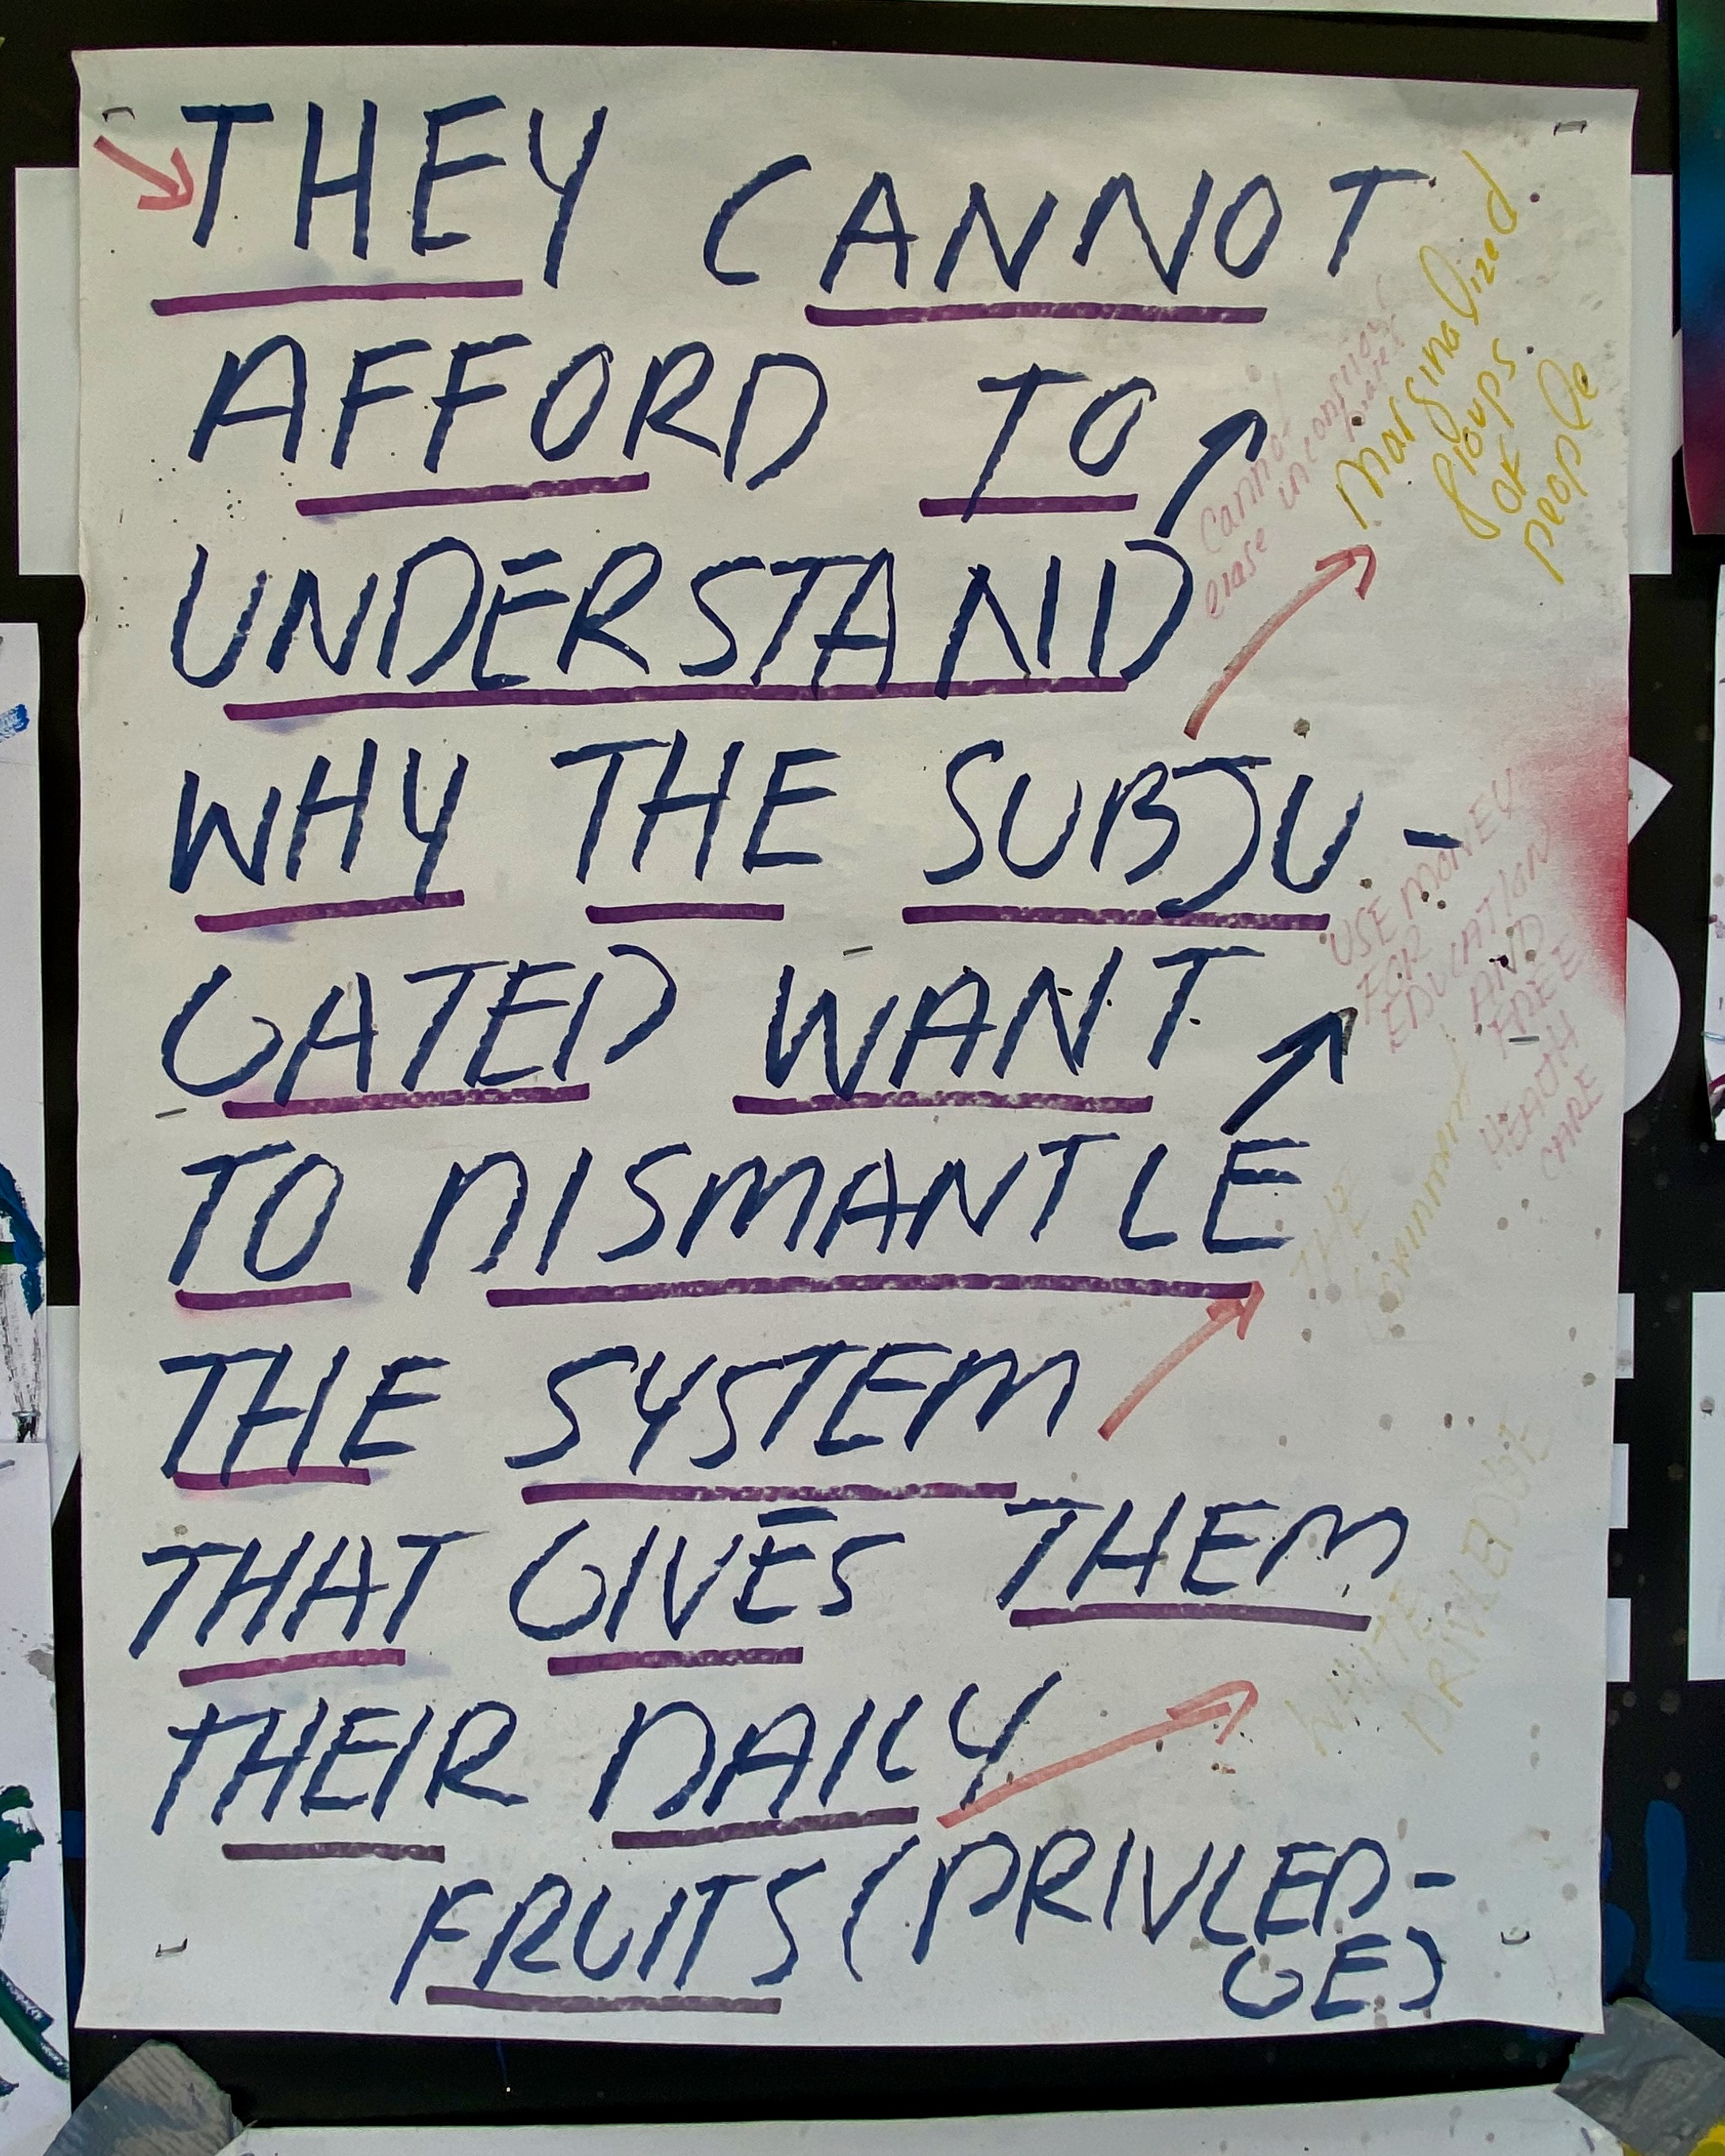 THEY CANNOT
AFFORD TO
UNDERSTAND
WHY THE SUBJU-
GATED WANT
TO DISMANTLE
THE SYSTEM
THAT GIVES THEM
THEIR DAILY
FRUITS (PRIVLED-
GE)
marginalized
groups
of
people
erase
USE MONEY
FOR
EDUCATION
AND
FREE
HEALTH
CARE
THE
WHITE
PRIVLEDGE